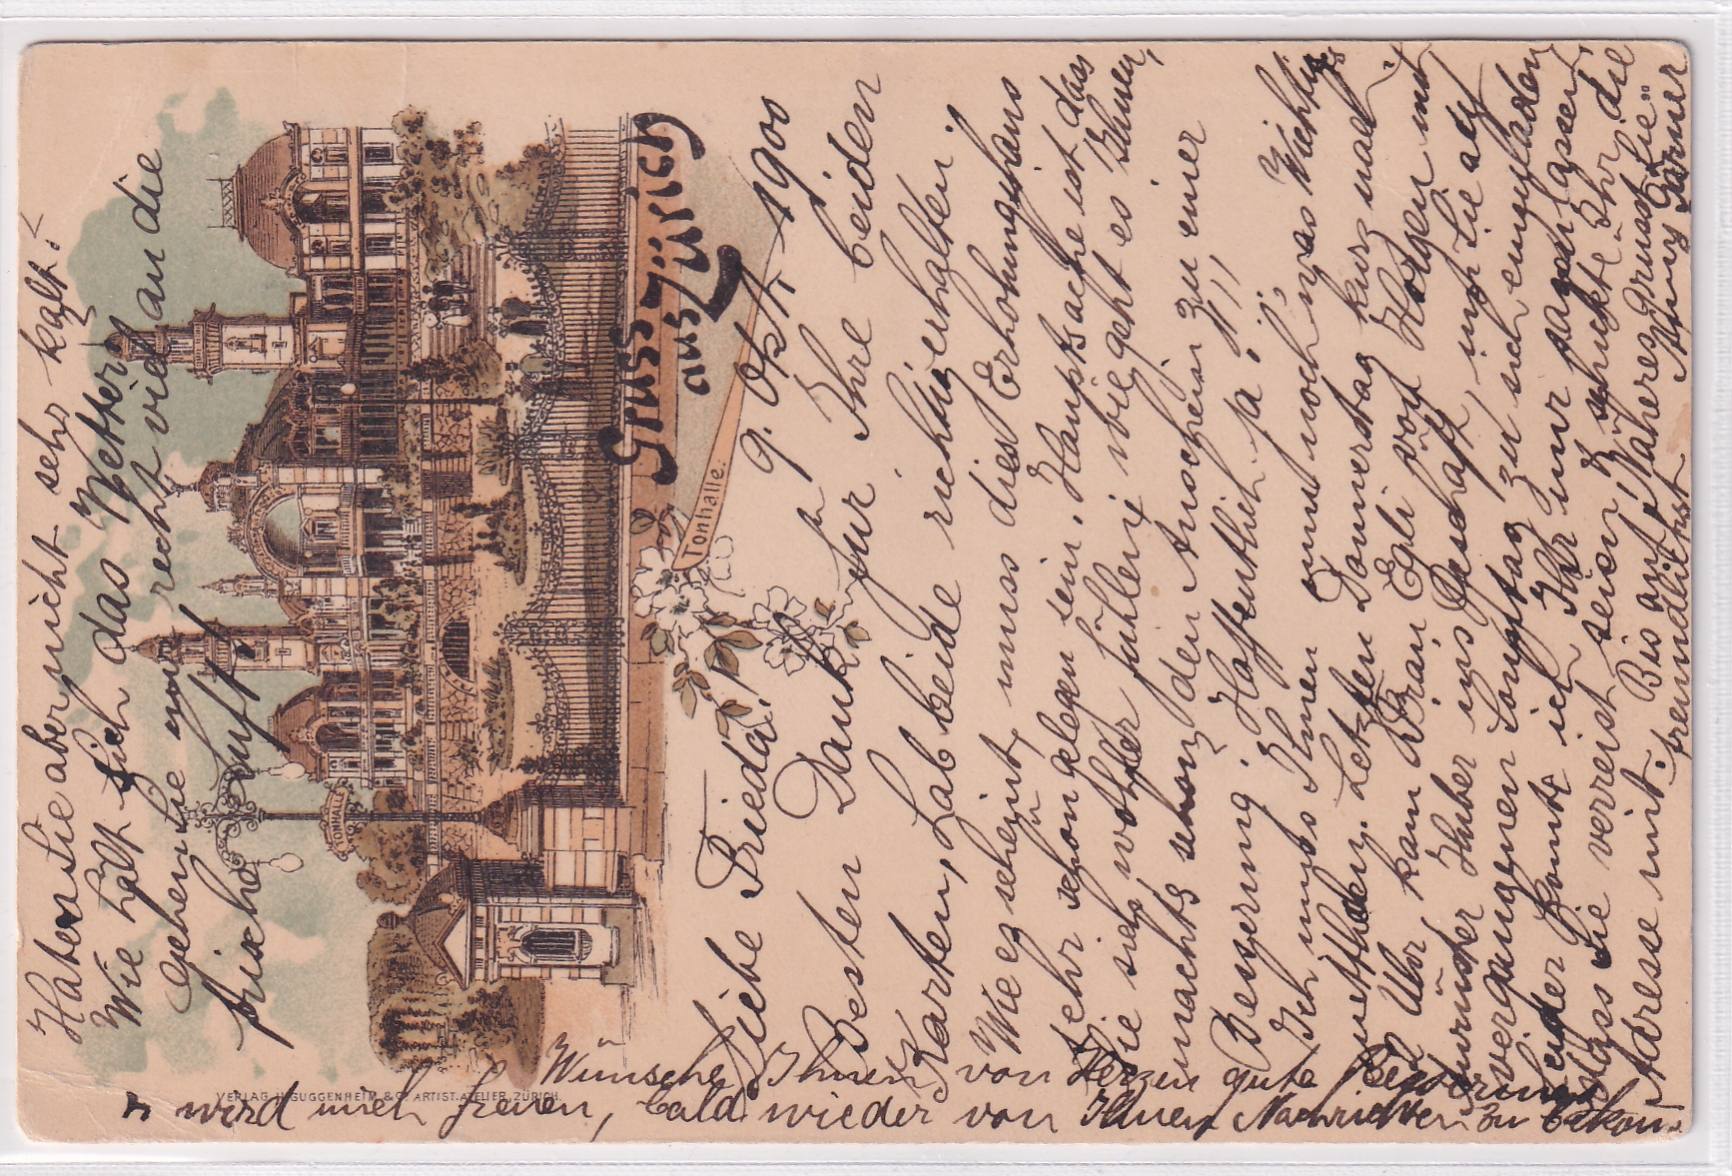 Gruss
aus Zürich
Tonhalle.
TONHALLE
9. Okt. 1900
Liebe Frieda!
Besten Dank für Ihre beiden
Karten, hab beide richtig erhalten!
Wie es scheint, muss dies Erhohlungshaus
sehr schön gelegen sein. Hauptsache ist dass
Sie sich wohler fühlen; wie geht es Ihnen,
nachts schon den Anschein zu einer
Besserung? Hoffentlich ja!!!
Ich muss Ihnen noch was Wichtiges
mittheilen. Letzten Donnerstag kurz nach
2 Uhr, kam Frau Egli von Horgen mit
Huber ins Geschäft, um Sie auf
vergangenen Sonntag zu sich einzuladen
Leider konnte ich Ihr nur sagen lassen
dass Sie verreist seien & schickte Ihr die
Adresse mit. Bis auf Näheres grüsst Sie
freundlichst
Haben Sie aber nicht sehr kalt?
Wie hält sich das Wetter?
Gehen Sie nur recht viel an die
frische Luft!
VERLAG H. GUGGENHEIM & Co ARTIST. ATELIER, ZÜRICH.
Wünsche Ihnen von Herzen gute Besserung
& wird mich freuen, bald wieder von Ihnen Nachrichten zu bekom.